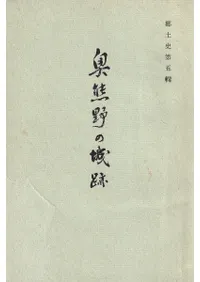 郷土史第五輯
奥熊野の城跡